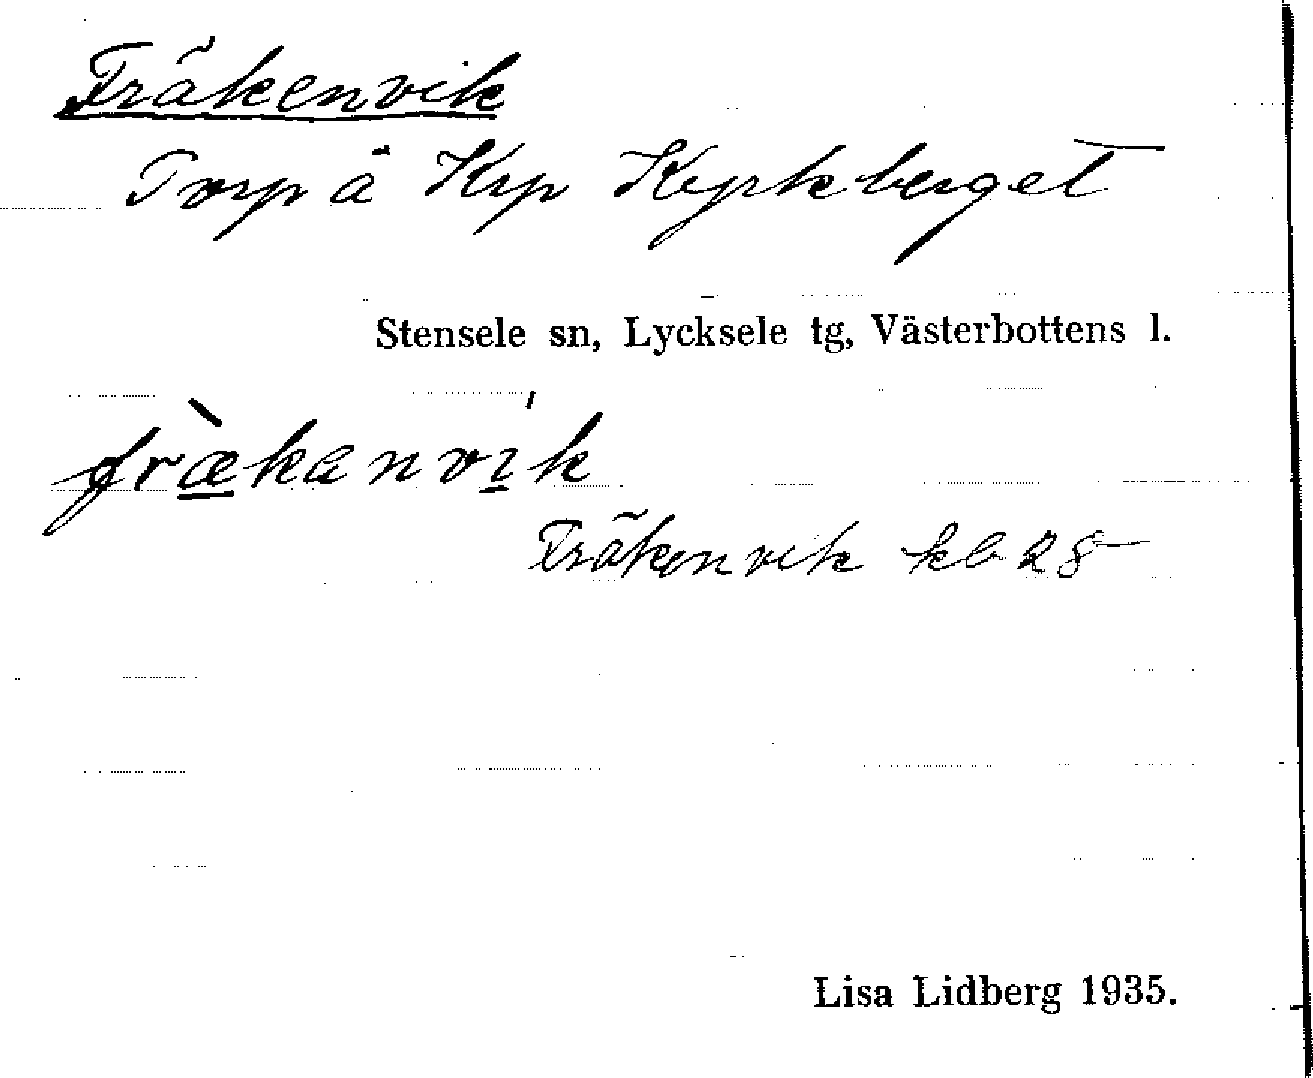 Fräkenvik
Torp å Krp Kyrkberget
Stensele sn, Lycksele tg, Västerbottens l.
fræ̀kanvík
Fräkenvik kb 28
Lisa Lidberg 1935.